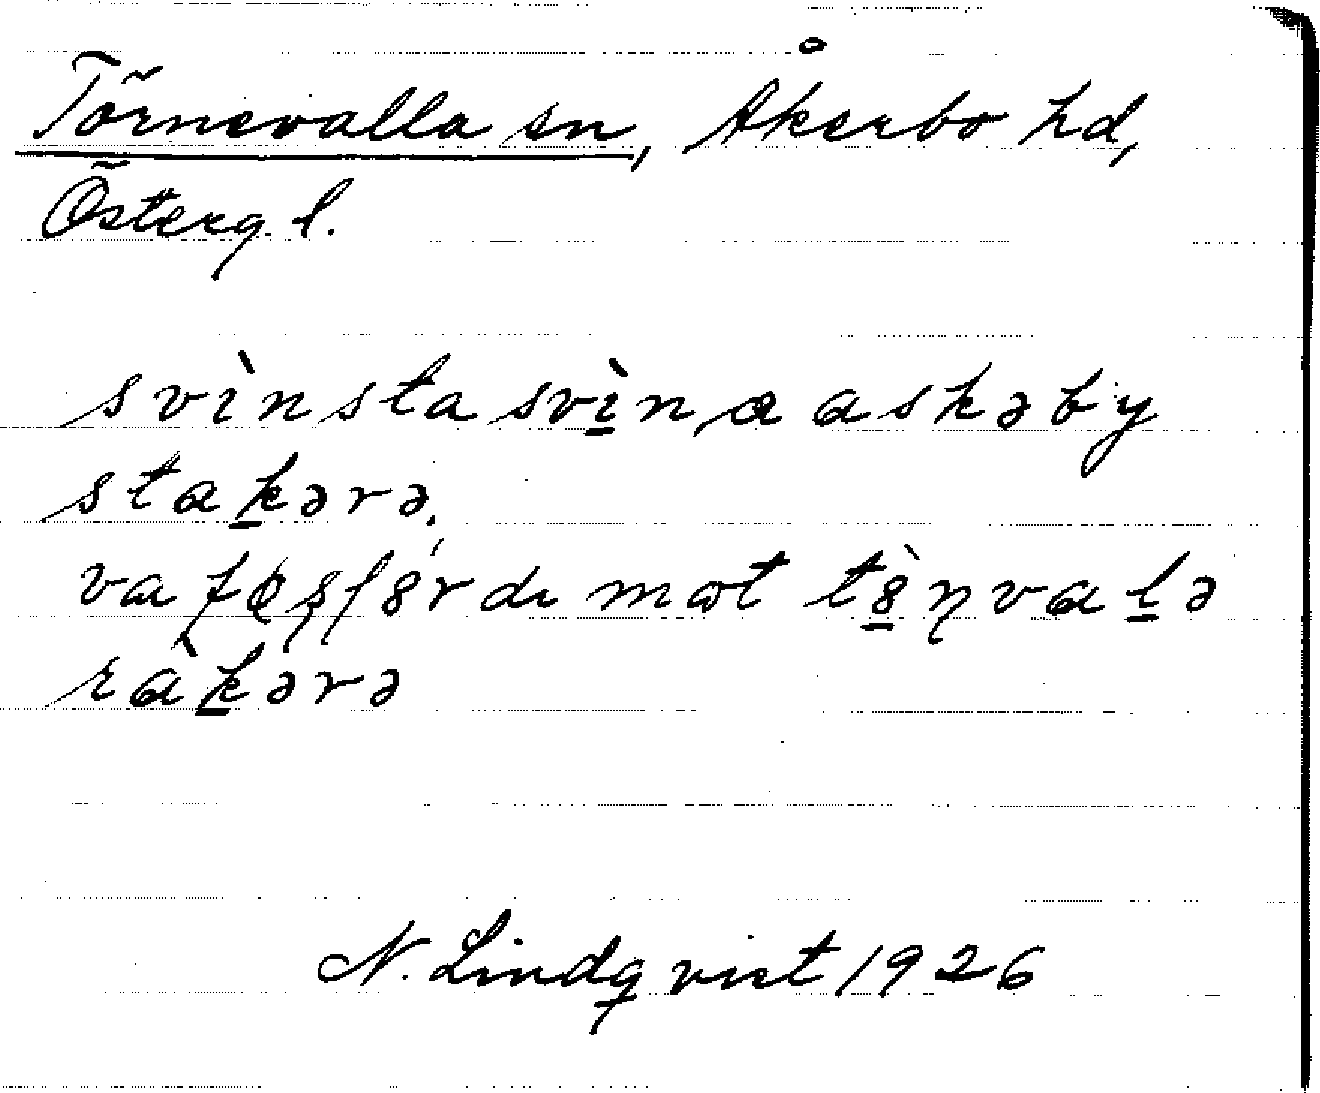 Törnevalla sn, Åkerbo hd,
Österg. l.
svìnsta svì̠nɑ askəby
stak̠ərə.
va fɷʂlɵ́rdɩ mɷt tɵ̠̀ɳval̠ə
ràk̠ərə
N. Lindqvist 1926